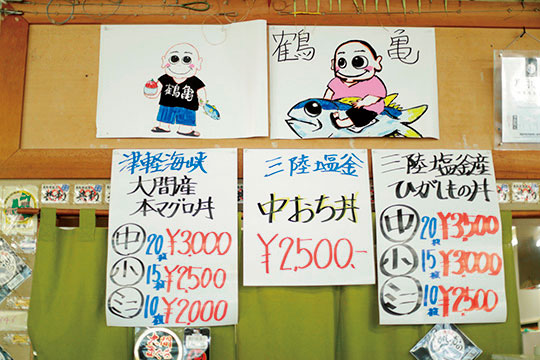 鶴亀
鶴 亀
津軽海峡
大間産
本マグロ丼
中 20枚 ¥3,000
小 15枚 ¥2,500
ミニ 10枚 ¥2,000
三陸塩釜
中おち丼
¥2,500-
三陸塩釜産
ひがしもの丼
中 20枚 ¥3,500
小 15枚 ¥3,000
ミニ 10枚 ¥2,500